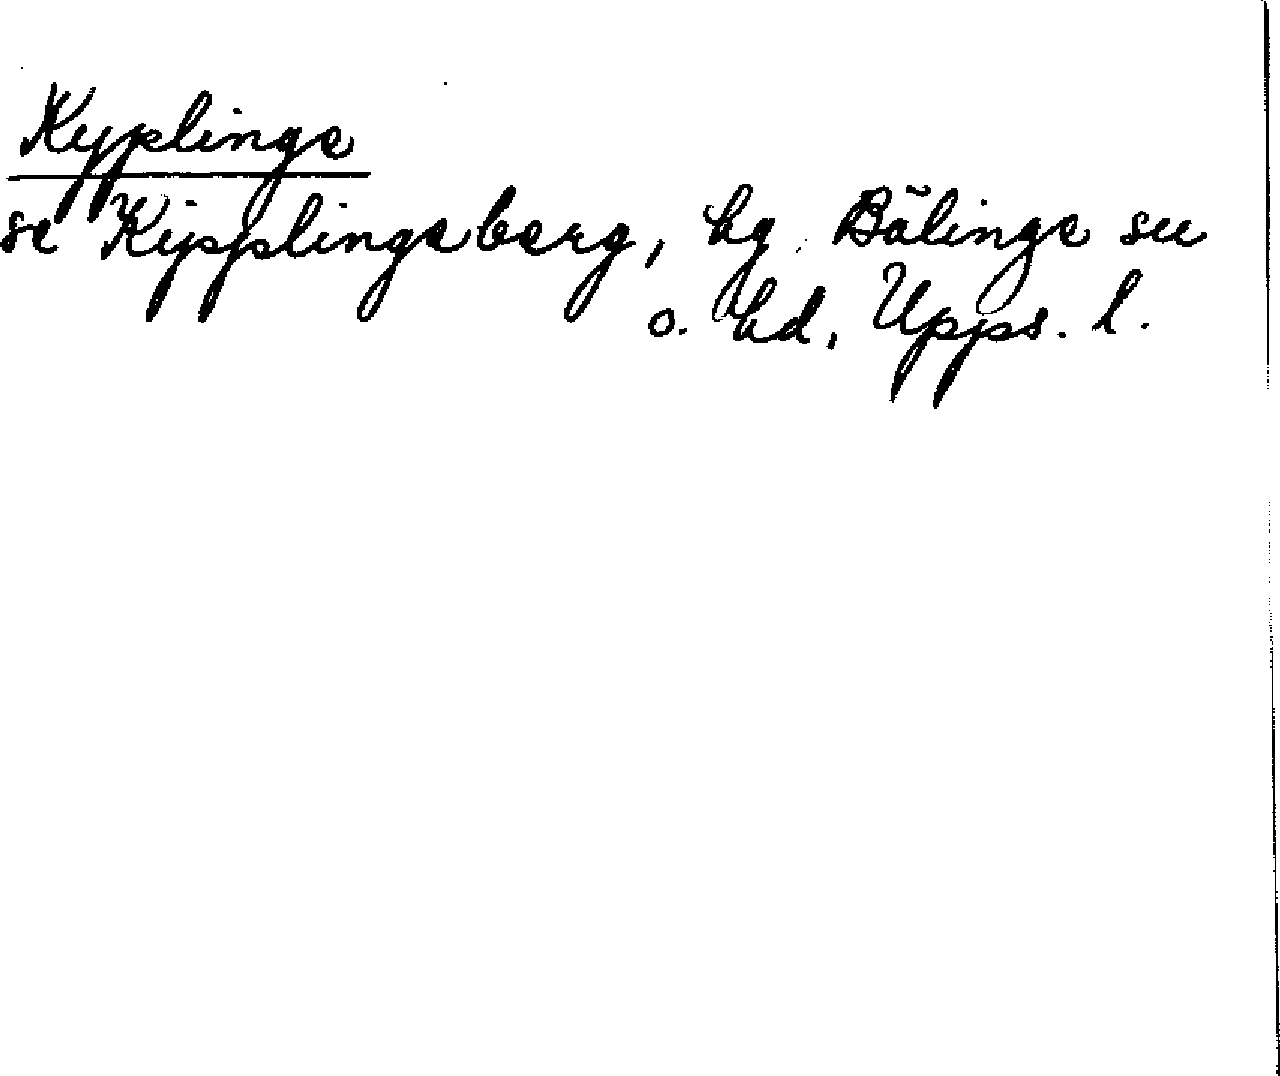 Kyplinge
se Kyplingeberg, hg, Bälinge sn
o. hd, Upps. l.